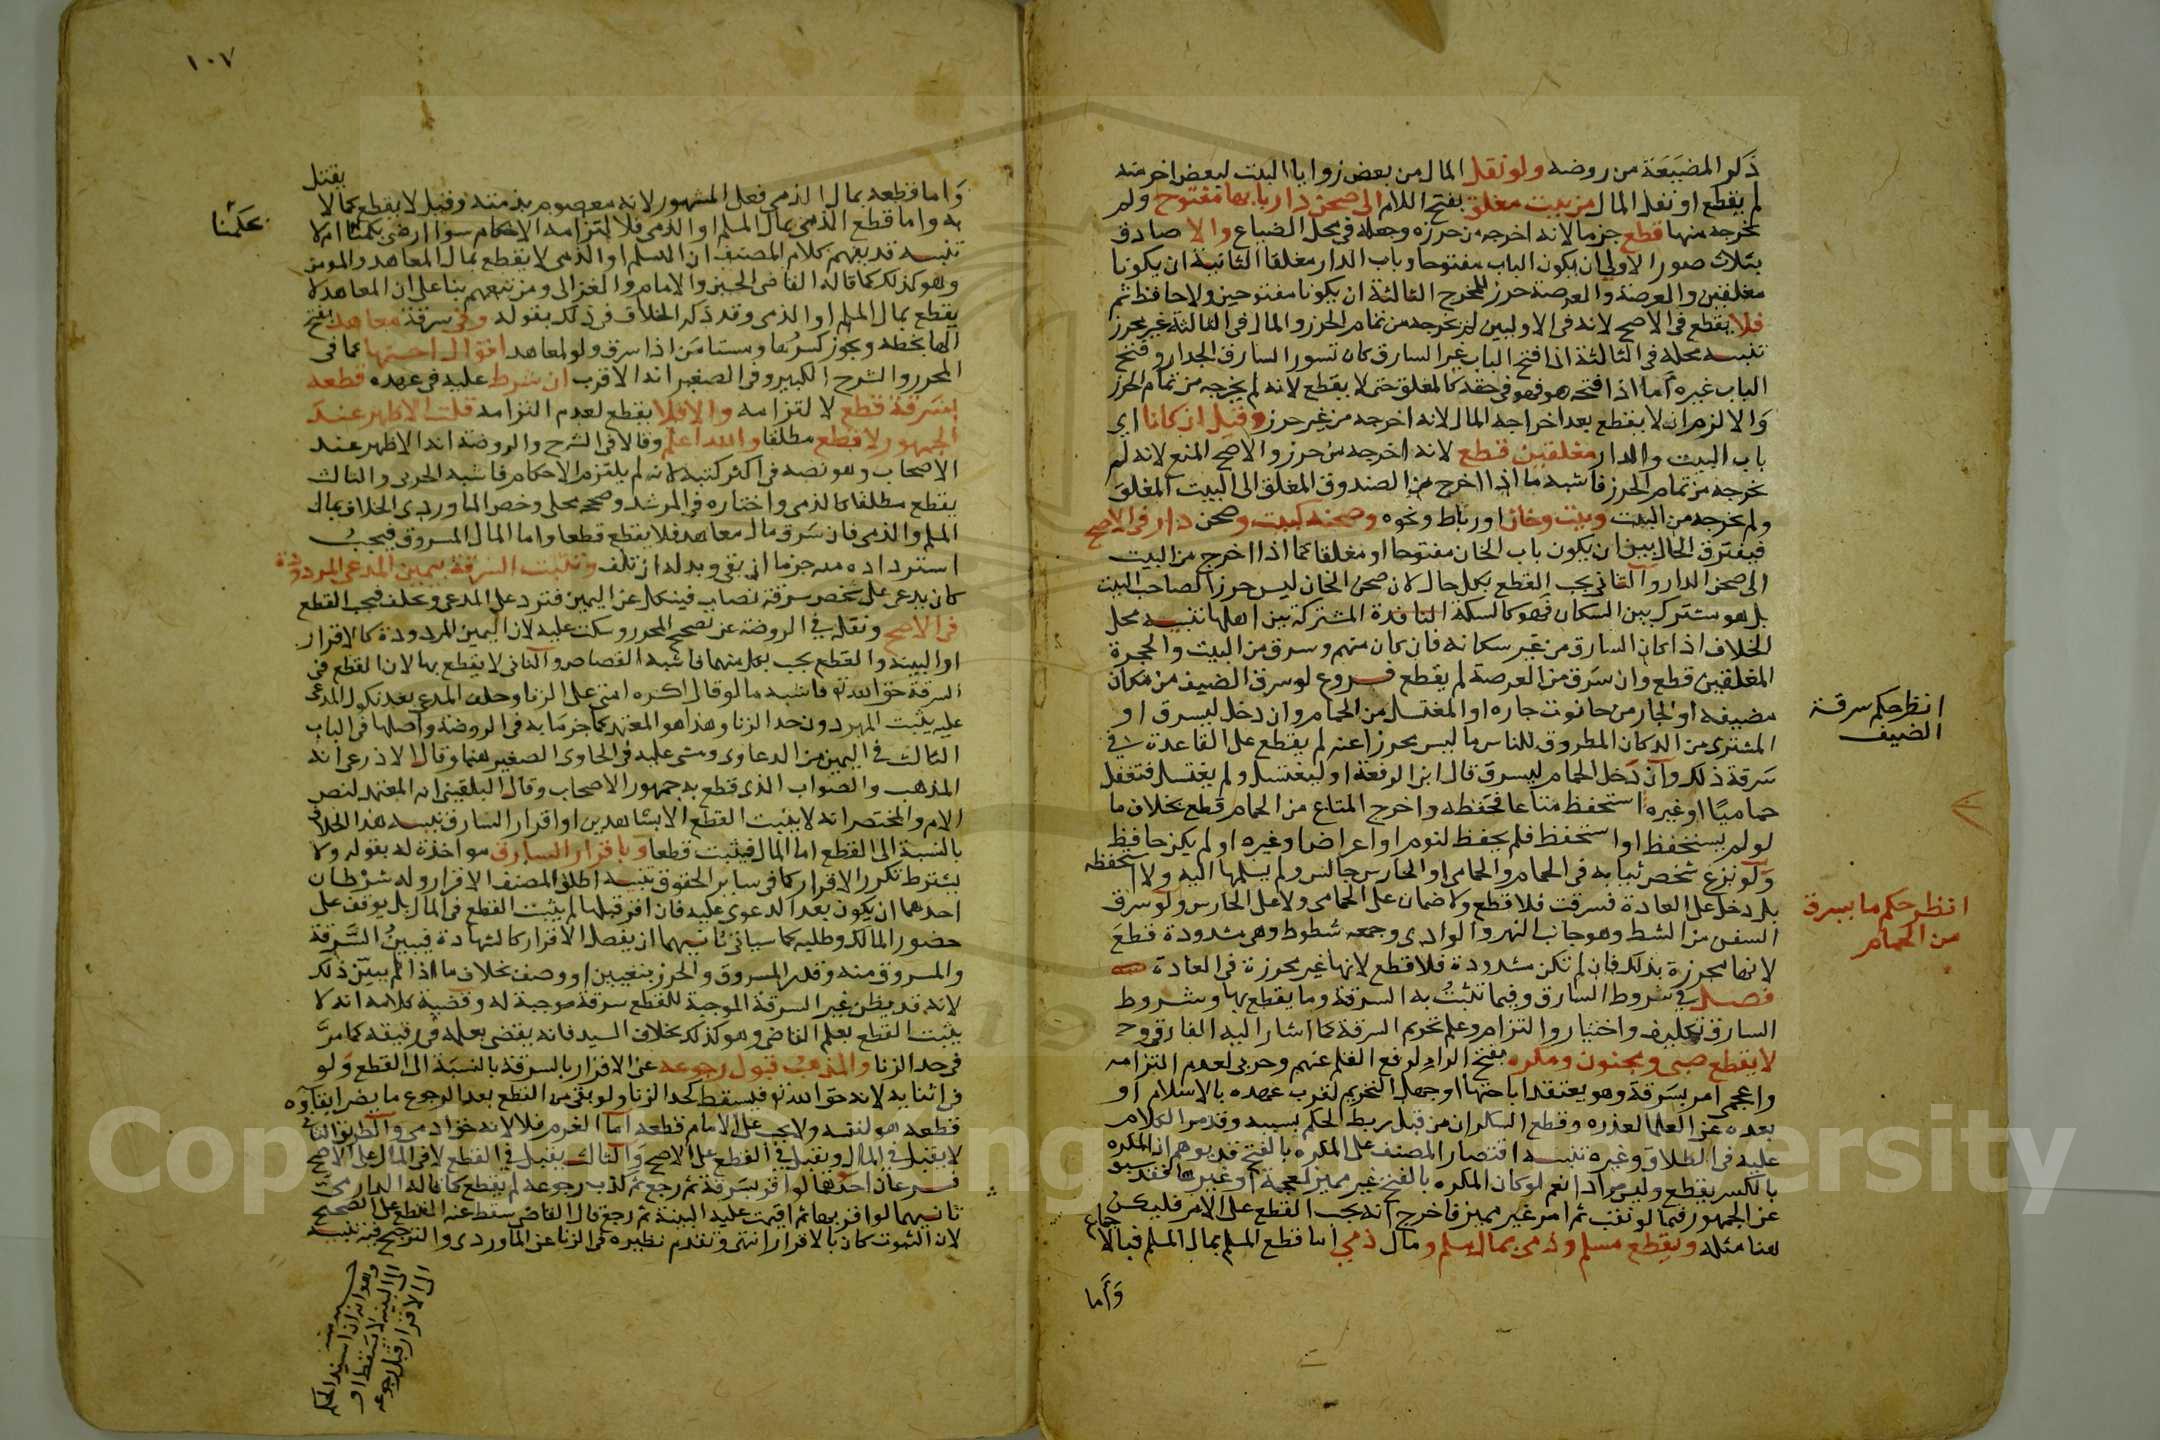 ذكر المضبعة من روضه ولو نقل المال من بعض زوايا البيت لبعض اخر منه
لم يقطع او نقل المال من بيت مغلق بفتح اللام الى صحن دار بابها مفتوح ولم
يخرجه منها قطع جزما لانه اخرجه من حرزه وجعله في محل الضياع والا صادق
بثلاث صور الاولى ان يكون الباب مفتوحا وباب الدار مغلقا الثانية ان يكونا
مغلقين والعرصة والعرصة حرز للمخرج الثالثة ان يكونا مفتوحين ولا حافظ ثم
فلا يقطع في الاصح لانه في الاوليين لم يخرجه من تمام الحرز والمال في الثالثة غير محرز
تنبيه محله في الثالثة اذا فتح الباب غير السارق كان تسور السارق الجدار وفتح
الباب غيره اما اذا فتحه هو فهو في حقه كالمغلق حتى لا يقطع لانه لم يخرجه من تمام الحرز
والا لزم ان لا يقطع بعد اخراجه المال لانه اخرجه من غير حرز وقيل ان كانا اي
باب البيت والدار مغلقين قطع لانه اخرجه من حرز والاصح المنع لانه لم
يخرجه من تمام الحرز فاشبه ما اذا اخرج من الصندوق المغلق الى البيت المغلق
ولم يخرجه من البيت وبيت وخان او رباط ونحوه وصحنه كبيت وصحن دار في الاصح
فيفترق الحال بين ان يكون باب الخان مفتوحا او مغلقا كما اذا اخرج من البيت
الى صحن الدار والثاني يجب القطع بكل حال لان صحن الخان ليس حرزا لصاحب البيت
بل هو مشترك بين السكان فهو كالسكة النافذة المشتركة بين اهلها تنبيه محل
الخلاف اذا كان السارق من غير سكانه فان كان منهم وسرق من البيت والحجرة
المغلقين قطع وان سرق من العرصة لم يقطع فروع لو سرق الضيف من مكان
مضيفه او الجار من حانوت جاره او المغتسل من الحمام وان دخل ليسرق او
المشتري من الدكان المطروق للناس ما ليس بمحرز اعنه لم يقطع على القاعدة في
سرقة ذلك وان دخل الحمام ليسرق قال ابن الرفعة او ليغتسل ولم يغتسل فتغفل
حماميا او غيره استحفظ متاعا فحفظه واخرج المتاع من الحمام قطع بخلاف ما
لو لم يستحفظ او استحفظ فلم يحفظ لنوم او اعراض او غيره او لم يكن حافظ
ولو نزع شخص ثيابه في الحمام والحمامي او الحارس جالس ولم يسلمها اليه ولا استحفظه
بل دخل على العادة فسرقت فلا قطع ولا ضمان على الحمامي ولا على الحارس ولو سرق
السفن من الشط وهو جانب النهر والوادي وجمعه شطوط وهي مشدودة قطع
لانها محرزة بذلك فان لم تكن مشدودة فلا قطع لانها غير محرزة في العادة
فصل في شروط السارق وفيما تثبت به السرقة وما يقطع بها وشروط
السارق تكليف واختيار والتزام وعلم تحريم السرقة كما اشار اليه الفارقي وح
لا يقطع صبي ومجنون ومكره بفتح الراء لرفع القلم عنهم وحربي لعدم التزامه
واعجمي امر بسرقة وهو يعتقد اباحتها او جهل التحريم لقرب عهده بالاسلام او
بعده عن العلما لعذره وقطع السكران من قبل ربط الحكم بسببه وقد مر الكلام
عليه في الطلاق وغيره تنبيه اقتصار المصنف على المكره بالفتح قد يوهم ان المكره
بالكسر يقطع وليس مرادا نعم لو كان المكره بالفتح غير مميز لعجمة او غيرها فقد سبق
عن الجمهور فيما لو نقب ثم امر غير مميز فاخرج انه يجب القطع على الامر فليكن
هنا مثله ويقطع مسلم وذمي بمال مسلم ومال ذمي اما قطع المسلم بمال المسلم فبالاجماع
واما
انظر حكم سرقة
الضيف
انظر حكم ما يسرق
من الحمام
١٠٧
واما قطعه بمال الذمي فعلى المشهور لانه معصوم بذمته وقيل لا يقطع كما لا يقتل
به واما قطع الذمي بمال المسلم او الذمي فلالتزامه الاحكام سوا ارضي بحكمنا ام لا
تنبيه قد يفهم كلام المصنف ان المسلم او الذمي لا يقطع بمال المعاهد والمومن
وهو كذلك كما قاله القاضي الحسين والامام والغزالي ومن تبعهم بنا على ان المعاهد لا
يقطع بمال المسلم او الذمي وقد ذكر الخلاف في ذلك بقوله وفي سرقة معاهد بفتح
الها بخطه ويجوز كسرها ومستامن اذا سرق ولو لمعاهد اقوال احسنها كما في
المحرر والشرح الكبير وفي الصغير انه الاقرب ان شرط عليه في عهده قطعه
بسرقة قطع لالتزامه والا فلا يقطع لعدم التزامه قلت الاظهر عند
الجمهور لا قطع مطلقا والله اعلم وقالا في الشرح والروضة انه الاظهر عند
الاصحاب وهو نصه في اكثر كتبه لانه لم يلتزم الاحكام فاشبه الحربي والثالث
يقطع مطلقا كالذمي واختاره في المرشد وصححه مجلي وخص الماوردي الخلاف بمال
المسلم والذمي فان سرق مال معاهد فلا يقطع قطعا واما المال المسروق فيجب
استرداده منه جزما ان بقي وبدله ان تلف وتثبت السرقة بيمين المدعي المردودة
كان يدعي على شخص سرقة نصاب فينكل عن اليمين فترد على المدعي ويحلف فيجب القطع
في الاصح ونقله في الروضة عن تصحيح المحرر وسكت عليه لان اليمين المردودة كالاقرار
او البينة والقطع يجب بكل منهما فاشبه القصاص والثاني لا يقطع بها لان القطع في
السرقة حق الله تع فاشبه ما لو قال اكره امتي على الزنا وحلف المدعي بعد نكول المدعى
عليه يثبت المهر دون حد الزنا وهذا هو المعتمد كما جزما به في الروضة واصلها في الباب
الثالث في اليمين من الدعاوى ومشى عليه في الحاوي الصغير هنا وقال الاذرعي انه
المذهب والصواب الذي قطع به جمهور الاصحاب وقال البلقيني انه المعتمد لنص
الام والمختصر انه لا يثبت القطع الا بشاهدين او اقرار السارق تنبيه هذا الخلاف
بالنسبة الى القطع اما المال فيثبت قطعا وباقرار السارق مواخذة له بقوله ولا
يشترط تكرر الاقرار كما في ساير الحقوق تنبيه اطلق المصنف الاقرار وله شرطان
احدهما ان يكون بعد الدعوى عليه فان اقر قبلها لم يثبت القطع في المال بل يوقف على
حضور المالك وطلبه كما سياتي ثانيهما ان يفصل الاقرار كالشهادة فيبين السرقة
والمسروق منه وقدر المسروق والحرز بتعيين او وصف بخلاف ما اذا لم يبين ذلك
لانه قد يظن غير السرقة الموجبة للقطع سرقة موجبة له وقضية كلامه انه لا
يثبت القطع بعلم القاضي وهو كذلك بخلاف السيد فانه يقضي بعلمه في رقيقه كما مر
في حد الزنا والمذهب قبول رجوعه عن الاقرار بالسرقة بالنسبة الى القطع ولو
في اثنايه لانه حق الله تع فيسقط كحد الزنا ولو بقي من القطع بعد الرجوع ما يضر ابقاؤه
قطعه هو لنفسه ولا يجب على الامام قطعه اما الغرم فلا لانه حق ادمي والطريق الثاني
لا يقبل في المال ويقبل في القطع على الاصح والثالث يقبل في القطع لا في المال على الاصح
فرعان احدهما لو اقر بسرقة ثم رجع ثم كذب رجوعه لم يقطع كما قاله الدارمي
ثانيهما لو اقر بها ثم اقيمت عليه البينة ثم رجع قال القاضي سقط عنه القطع على الصحيح
لان الثبوت كان بالاقرار انتهى وتقدم نظيره في الزنا عن الماوردي والترجيح فيه تنبيه
بحكمنا
وهو انه ان اسند الحكم
الى البينة لا يسقط او
الى الاقرار قبل رجوعه
Copyright © King Saud University